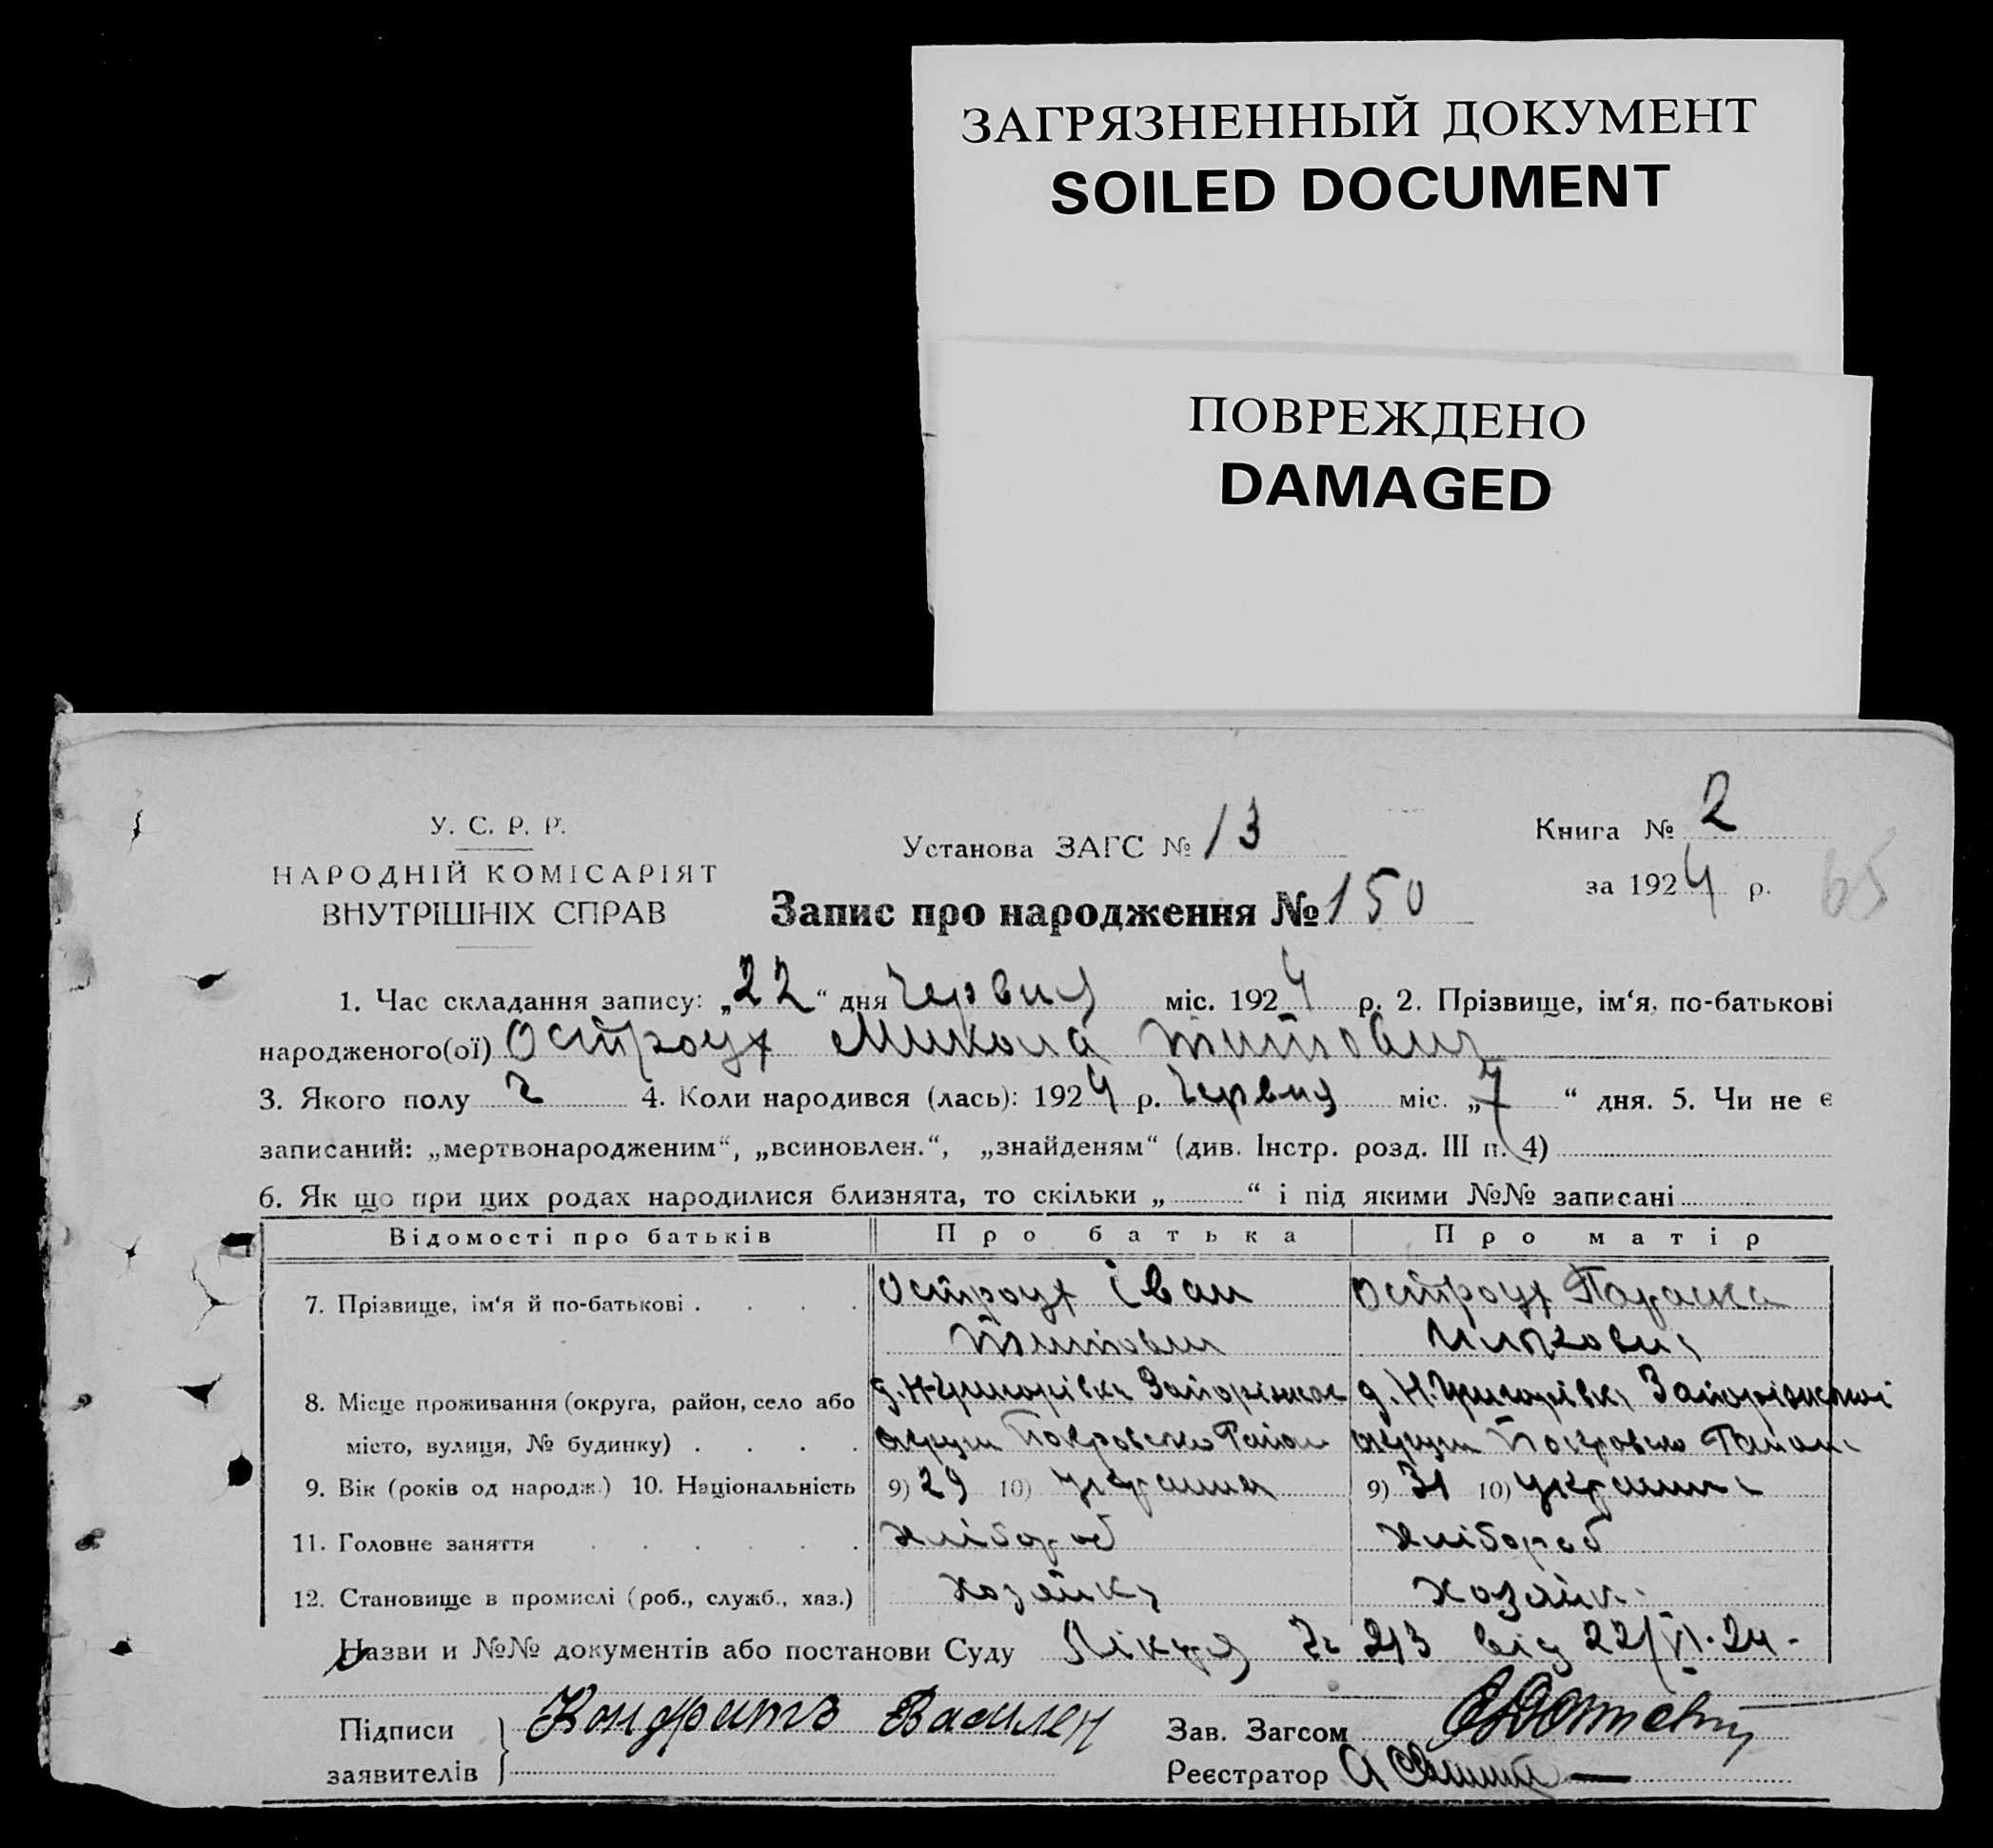 ЗАГРЯЗНЕННЫЙ ДОКУМЕНТ
SOILED DOCUMENT
ПОВРЕЖДЕНО
DAMAGED
У. С. Р. Р.
НАРОДНІЙ КОМІСАРІЯТ
ВНУТРІШНІХ СПРАВ
Установа ЗАГС № 13
Запис про народження № 150
Книга № 2
за 1924 р.
65
1. Час складання запису: „22“ дня Червня міс. 1924 р. 2. Прізвище, ім‘я, по-батькові
народженого(ої) Остроух Микола Титович
3. Якого полу ч 4. Коли народився (лась): 1924 р. Червня міс. „7“ дня. 5. Чи не є
записаний: „мертвонародженим“, „всиновлен.“, „знайденям“ (див. Інстр. розд. III п. 4)
6. Як що при цих родах народилися близнята, то скільки „ “ і під якими №№ записані
Відомості про батьків Про батька Про матір
7. Прізвище, ім‘я й по-батькові . . . . Остроух Іван Остроух Параска
Титович
8. Місце проживання (округа, район, село або д. Н-Григорівка Запоріжськ д. Н. Григорівка Запоріжської
місто, вулиця, № будинку) . . . . округи Покровсько Район округи Покровсько Район
9. Вік (років од народж.) 10. Національність 9) 29 10) Украинц 9) 31 10) Украинк
11. Головне заняття . . . . . . Хлібороб Хлібороб
12. Становище в промислі (роб., служб., хаз.) хозяйка хозяйк
Назви и №№ документів або постанови Суду 213 від 22/VI-24
Підписи Кондратъ Василец Зав. Загсом
заявителів Реєстратор